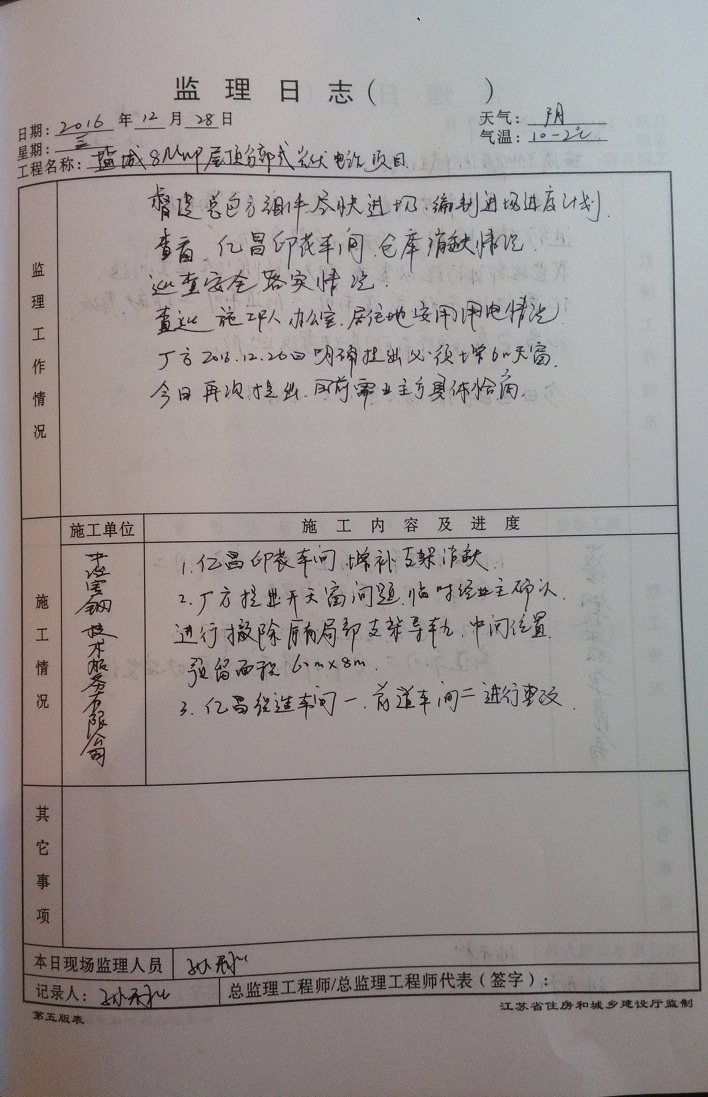 监理日志( )
日期：2016年12月28日
天气：阴
星期：三
气温：10-2℃
工程名称：盐城8MWP屋顶分部式光伏电站项目
监理工作情况
督促总包方组件尽快进场、编制进场进度计划.
查看 亿昌印花车间、仓库消缺情况.
巡查安全落实情况.
查巡施工人办公室、居住地安用用电情况.
厂方2016.12.26日明确提出必须增加天窗.
今日再次提出、目前需业主方具体恰商.
施工情况
施工单位
施工内容及进度
技术服务有限公司
1.亿昌印花车间增补支架消缺.
2.厂方提出开天窗问题.临时经业主确认.
进行撤除原有局部支架导轨、中间位置
预留面积6mx8m.
3.亿昌织造车间一、前道车间二进行整改.
其它事项
本日现场监理人员
记录人：
总监理工程师/总监理工程师代表(签字)：
第五版表
江苏省住房和城乡建设厅监制